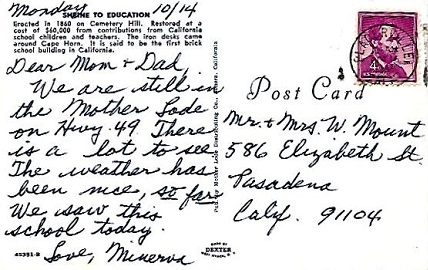 Monday 10/14
SHRINE TO EDUCATION
Erected in 1860 on Cemetery Hill. Restored at a
cost of $60,000 from contributions from California
school children and teachers. The iron desks came
around Cape Horn. It is said to be the first brick
school building in California.
Dear Mom & Dad
We are still in
the Mother Lode
on Hwy. 49 There
is a lot to see
The weather has
been nice, so far
We saw this
school today.
Love, Minerva
42351-B
Pub. by Mother Lode Distributing Co., California
MADE BY
DEXTER
WEST NYACK, N. Y.
Post Card
4¢
Mr. & Mrs. W. Mount
586 Elizabeth St.
Pasadena
Calif. 91104